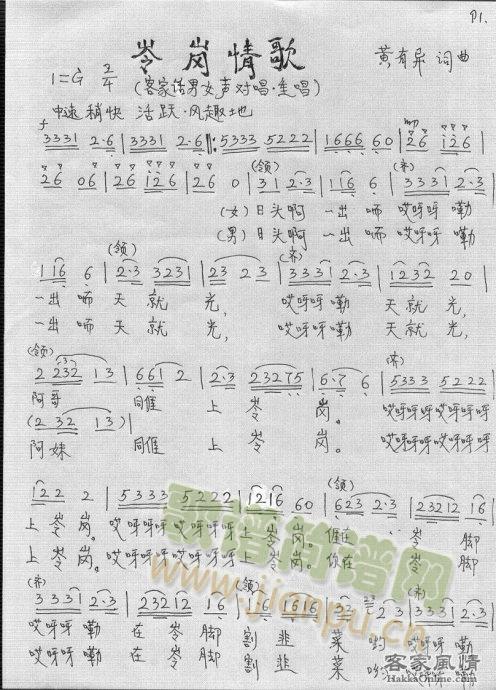 P1.
岑岗情歌
黄有异 词曲
1=G 2/4
(客家话男女声对唱·重唱)
中速 稍快 活跃·风趣地
f
3331 2·6 | 3331 2·6 |: 5333 5222 | 1666 60 | 26 126 |
26 06 | 26 126 | 26 0 | 31 2·3 | 116 6 | 3331 2·3 |
(领) (齐)
(女)日头啊 一出 嘀 哎呀呀 嘞
(男)日头啊 一出 嘀 哎呀呀 嘞
(领) (齐)
116 6 | 2·3 3231 | 23 23 | 3331 2·3 | 1232 20 |
一出 嘀 天 就 光, 哎呀呀 嘞 天就 光,
一出 嘀 天 就 光, 哎呀呀 嘞 天就 光,
(领) (齐)
2 232 13 | 661 2 | 2·3 23275 | 6·7 6 | 5333 5222 |
阿哥 同𠊎 上 岑 岗。 哎呀呀呀哎呀呀呀
(2 32 13)
阿妹 同𠊎 上 岑 岗。 哎呀呀呀哎呀呀呀
(领)
122 2 | 5333 5222 | 1216 60 | 623 2·3 | 23212 16 |
上岑 岗。 哎呀呀呀 哎呀呀呀 上岑 岗。 𠊎在 岑 脚
上岑 岗。 哎呀呀呀 哎呀呀呀 上岑 岗。 你在 岑 脚
(齐) (领) (齐)
3331 2·3 | 23212 16 | 16 1616 | 3 2 | 2·3 3331 2·3 |
哎呀呀 嘞 在 岑 脚 割 韭 菜 哟 哎呀呀 嘞
哎呀呀 嘞 在 岑 脚 割 韭 菜 哟 哎呀呀 嘞
歌谱简谱网
www.jianpu.cn
客家風情
HakkaOnline.com